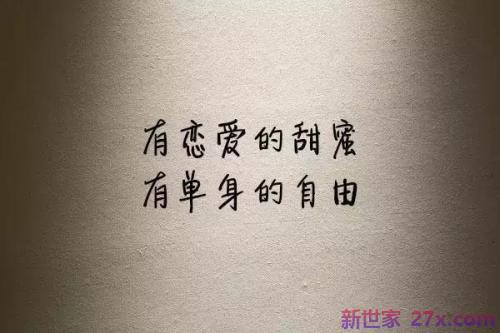 有恋爱的甜蜜
有单身的自由
新世家 27x.com